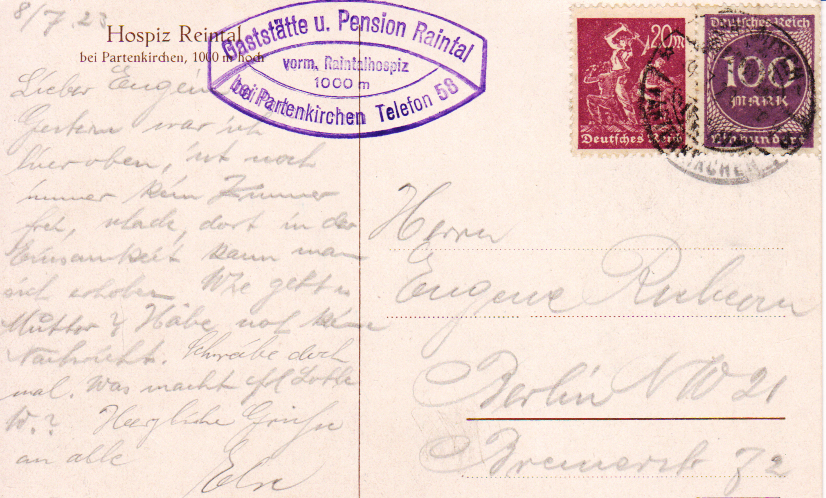 8/7.23
Hospiz Reintal
bei Partenkirchen, 1000 m hoch
Gaststätte u. Pension Raintal
vorm. Raintalhospiz
1000 m
bei Partenkirchen Telefon 58
20 M
Deutsches Reich
Deutsches Reich
100
MARK
Einhundert
Lieber Eugen
Gestern war ich
hier oben, ist noch
immer kein Zimmer
frei, dort in der
Einsamkeit kann man
sich erholen. Wie geht's
Mutter? Habe noch keine
Nachricht. Schreibe doch
mal. Was macht Lotte
W.? Herzliche Grüsse
an alle
Else
Herrn
Eugene
Berlin NW 21
Bremerstr 72